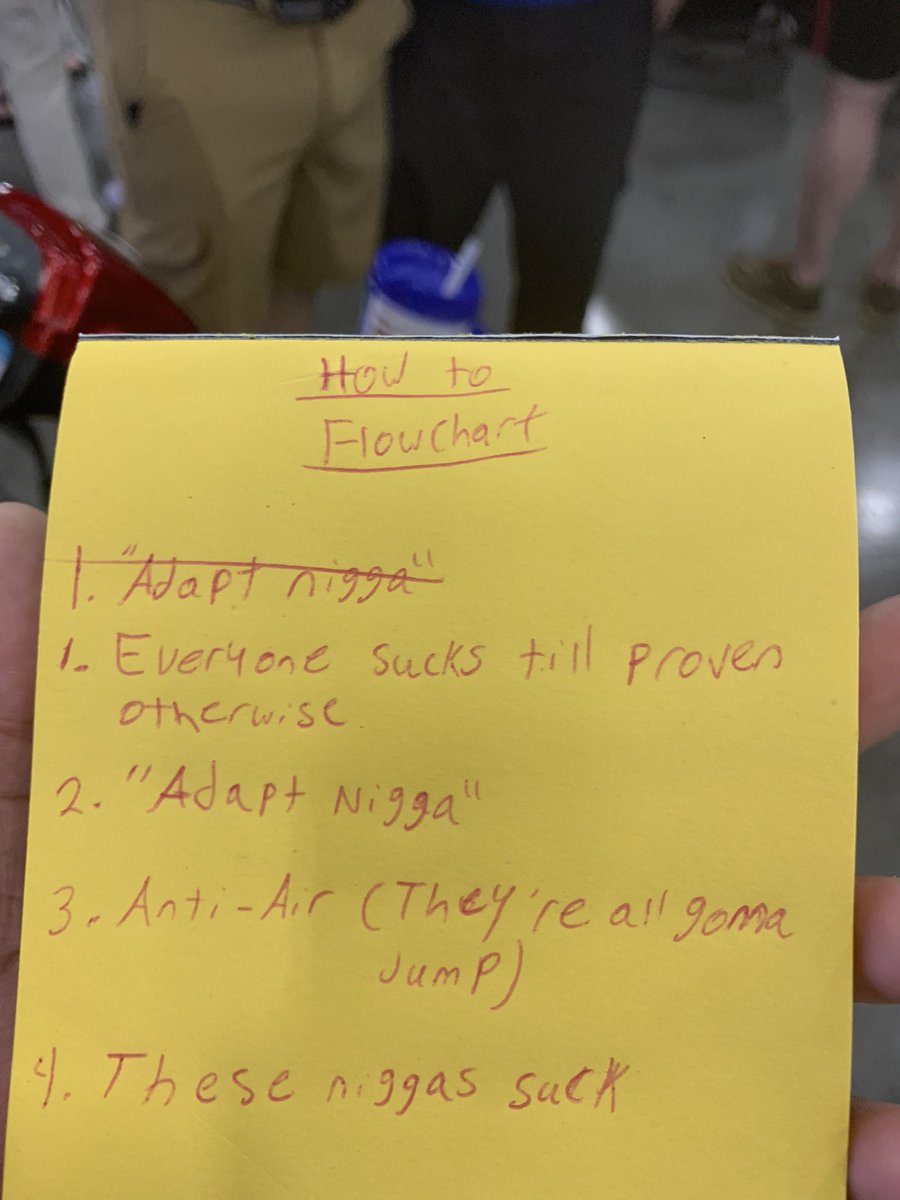 How to
Flowchart
1. "Adapt nigga"
1. Everyone sucks till proven
otherwise
2. "Adapt Nigga"
3. Anti-Air (They're all gonna
Jump)
4. These niggas suck